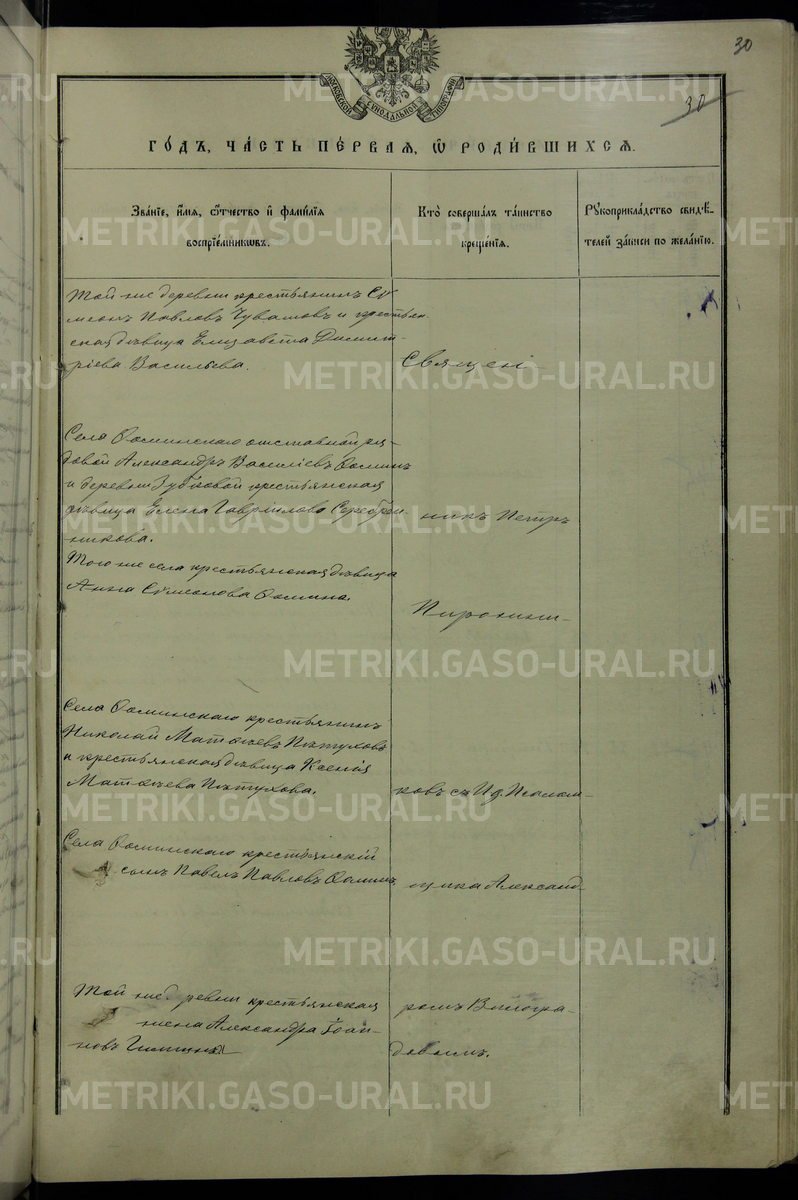 30
30
МОСКОВСКОЙ СѴНОДАЛЬНОЙ ТИПОГРАФІИ
ГО́ДЪ, ЧА́СТЬ ПЕ́РВАЯ, Ѽ РОДИ́ВШИХСЯ.
Зва́нїе, и҆́мѧ, ѻ҆́тчество и҆ фами́лїѧ
воспрїе́мникѡвъ.
Кто̀ соверша́лъ та́инство
креще́нїѧ.
Рꙋкоприкла́дство свидѣ́-
телей за́писи по жела́нїю.
Той же деревни крестьянинъ Сѵ
меонъ Павловъ Чувашовъ и крестьян
ская дѣвица Елизавета Димит
ріева Васильева.
Священ
Села Ѳоминскаго отставной ря-
довой Александръ Василіевъ Ѳоминъ
и деревни Зубковой крестьянская
дѣвица Елена Гавріилова Серебрян
никова.
никъ Петръ
Того же села крестьянская дѣвица
Анна Сѵмеонова Ѳомина.
Пироэкни-
Села Ѳоминскаго крестьянинъ
Николай Матѳеевъ Пѣтуховъ
и крестьянская дѣвица Ксенія
Матѳеева Пѣтухова.
ковъ съ И. д. Псалом-
Села Ѳоминскаго крестьянскій
сынъ Павелъ Павловъ Ѳоминъ.
щика Александ-
Той же деревни крестьянская
жена Александра Іоан-
нова
ромъ Виногра-
довымъ.
METRIKI.GASO-URAL.RU